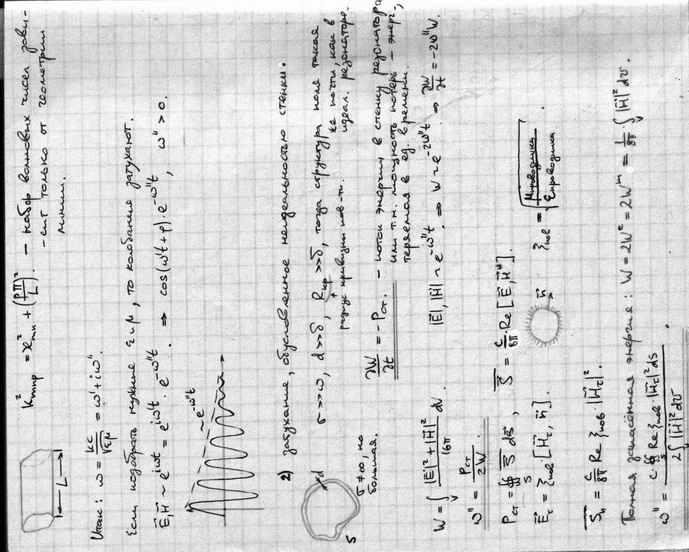 k²mnp = æ²mn + (pπ/L)². – набор волновых чисел зави-
– сит только от геометрии
линии.
L
Итак: ω = kc/√εμ = ω' + iω''.
Если подобрать нужные ε и μ, то колебания затухают.
E⃗, H⃗ ~ e^{iωt} = e^{iω't} · e^{-ω''t} ⇒ cos(ω't+φ)·e^{-ω''t}, ω'' > 0.
~e^{-ω''t}
2) затухание, обусловленное неидеальностью стенки.
σ >> ω, d >> δ, Rкр >> δ, тогда структура поля такая
же почти, как в
идеал. резонаторе.
радиус кривизны пов-ти.
d
S
σ ≠ ∞, но
большая,
∂W/∂t = -Pст. – поток энергии в стенку резонатора
или т.н. мощность потерь – энерг.,
теряемая в ед. времени.
W = ∫_V (|E⃗|² + |H⃗|²)/16π dV. |E⃗|, |H⃗| ~ e^{-ω''t} ⇒ W ~ e^{-2ω''t} ⇒ ∂W/∂t = -2ω''W.
ω'' = Pст/2W.
Pст = ∯_S S⃗ ds⃗, S⃗ = c/8π Re[E⃗, H⃗*].
E⃗τ = ζпов·[H⃗τ, n⃗]. n⃗ ζпов = √(μпроводника/εпроводника)
Sn = c/8π Re ζпов |H⃗τ|².
Полная запасённая энергия: W = 2Wᵉ = 2Wᵐ = 1/8π · ∫_V |H⃗|² dV.
ω'' = c ∯_S Re ζпов |H⃗τ|² ds / 2∫_V |H⃗|² dV.